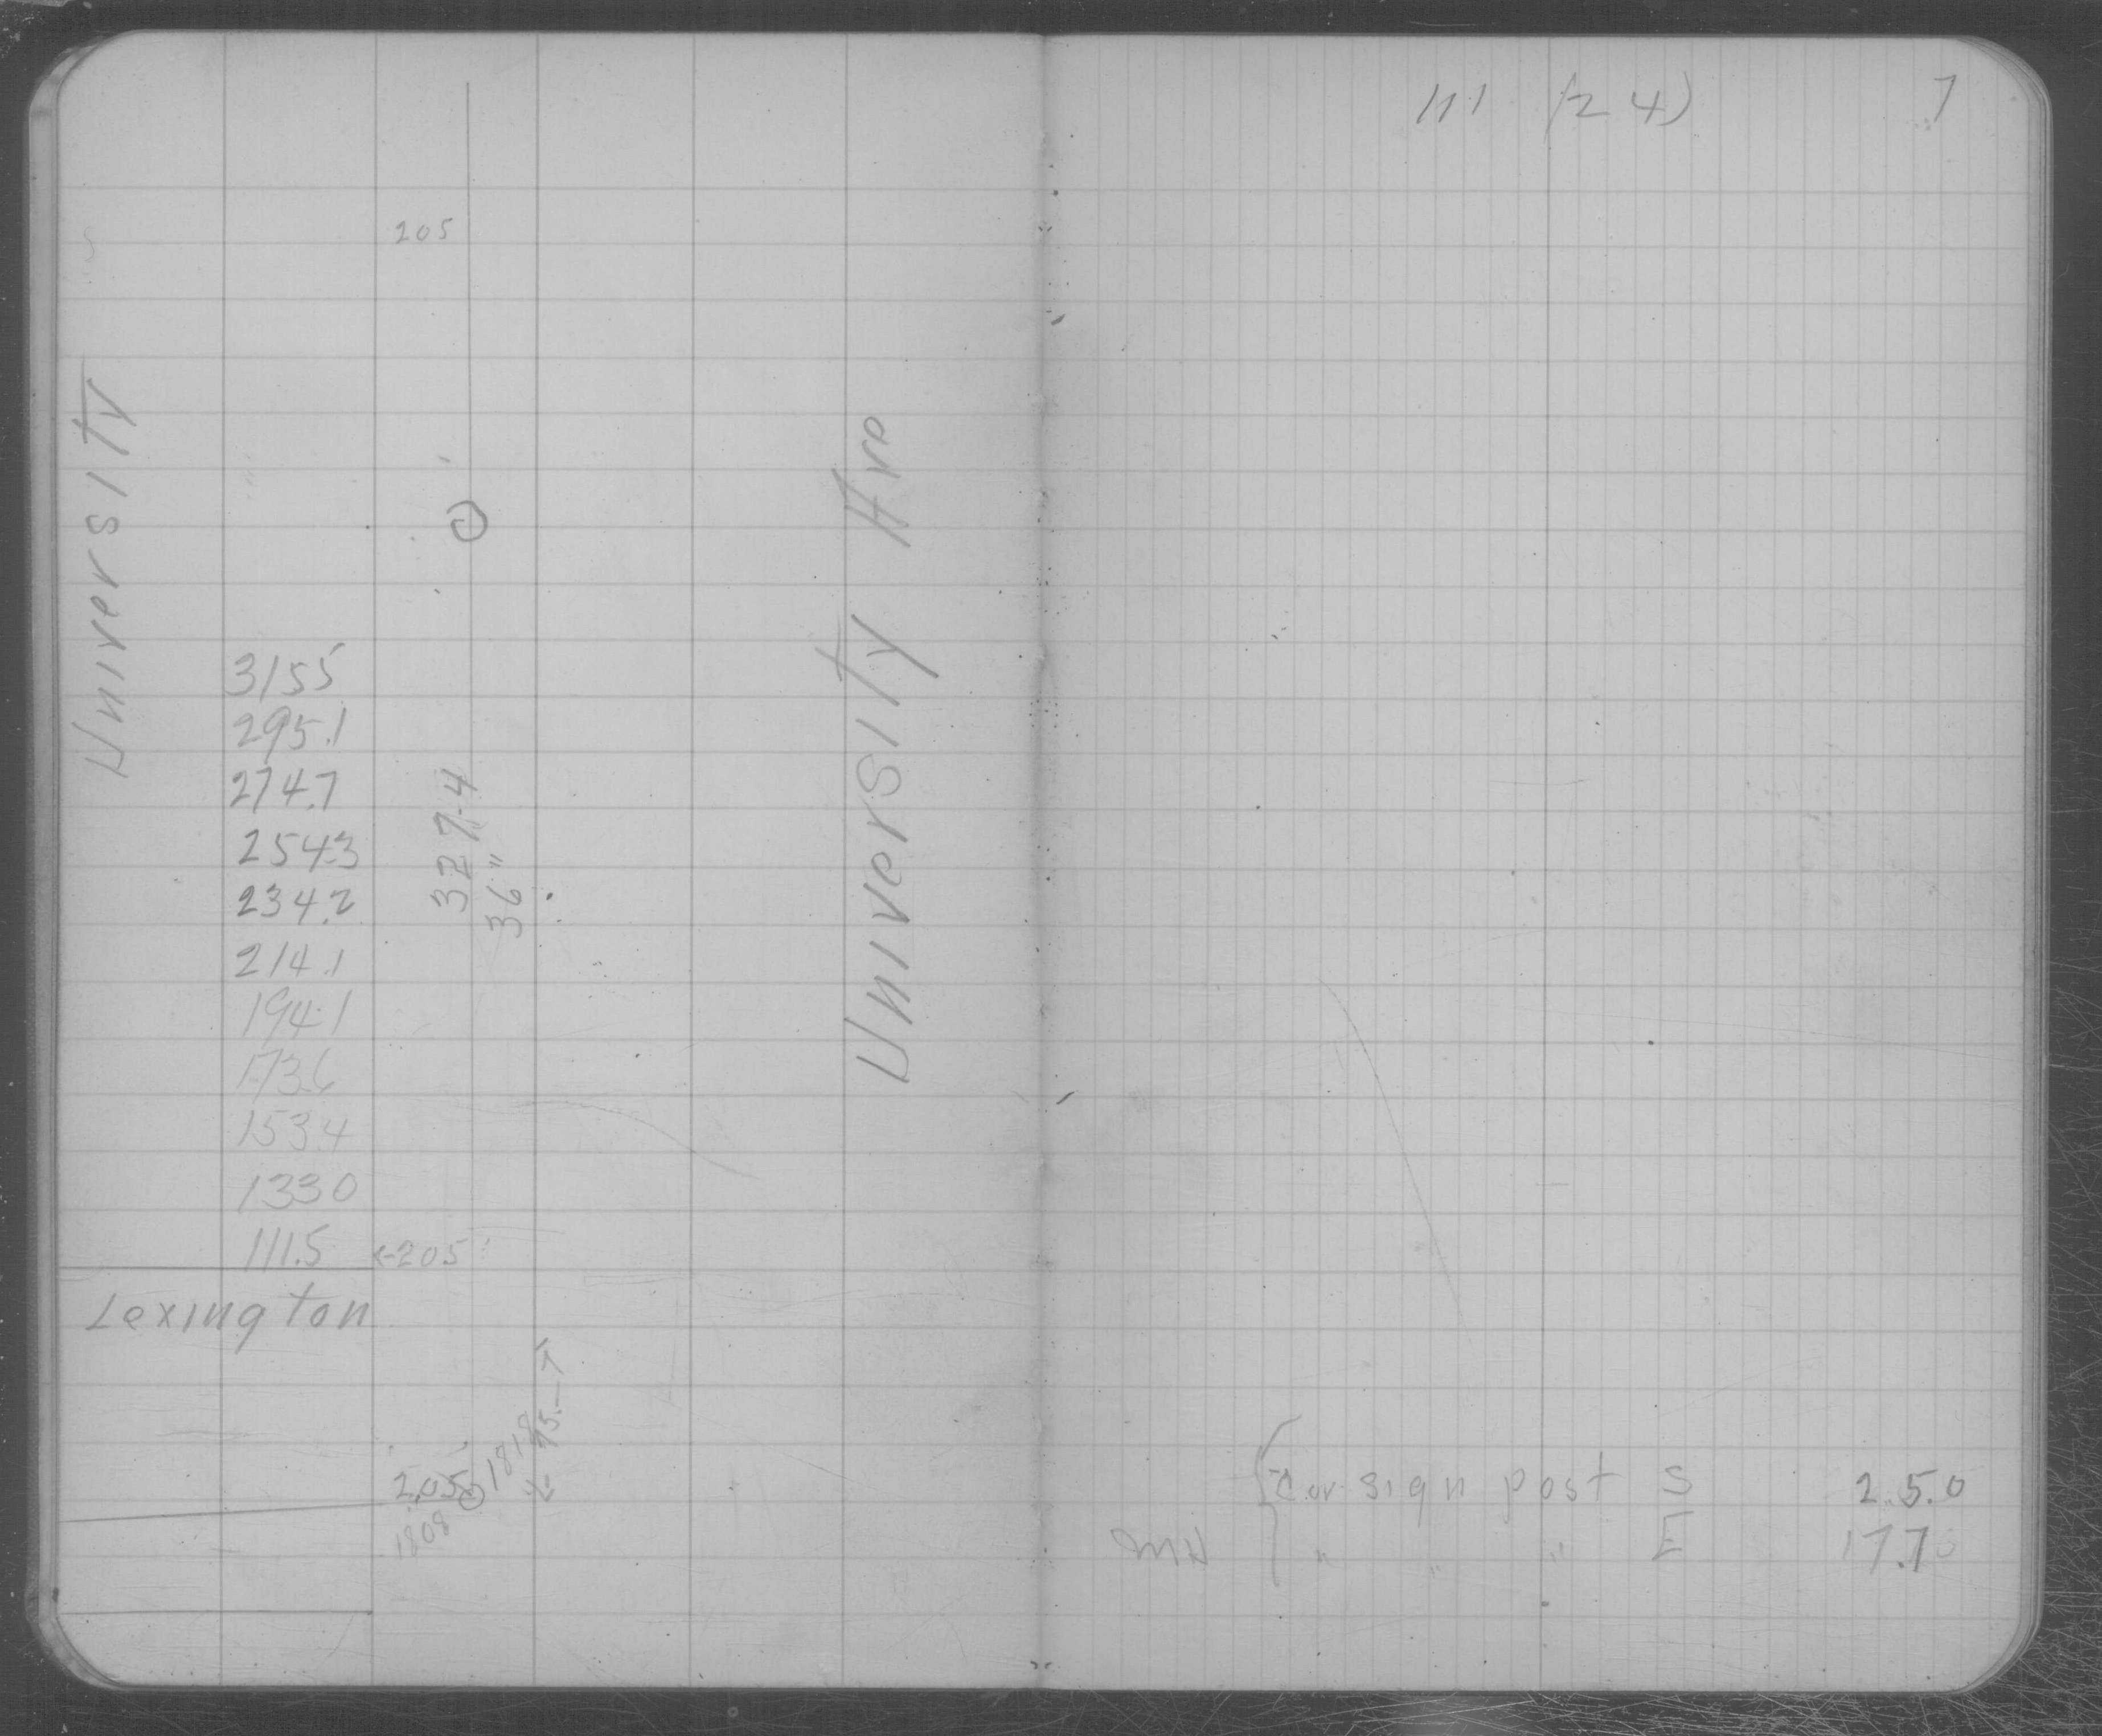 111 (24) 7
205
University
3155
295.1
274.7
254.3
234.2
214.1
194.1
173.6
153.4
133.0
111.5 ←205
327.4
36"
University Ave
Lexington
205 1818
1808
Cor sign post S 2.5.0
MH " " " E 17.7